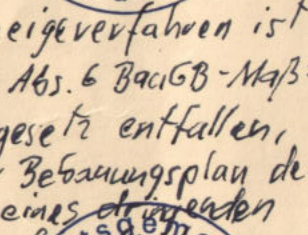 eigeverfahren ist
Abs. 6 BauGB-Maß
gesetz entfallen,
Bebauungsplan de
eines dringenden
sgem